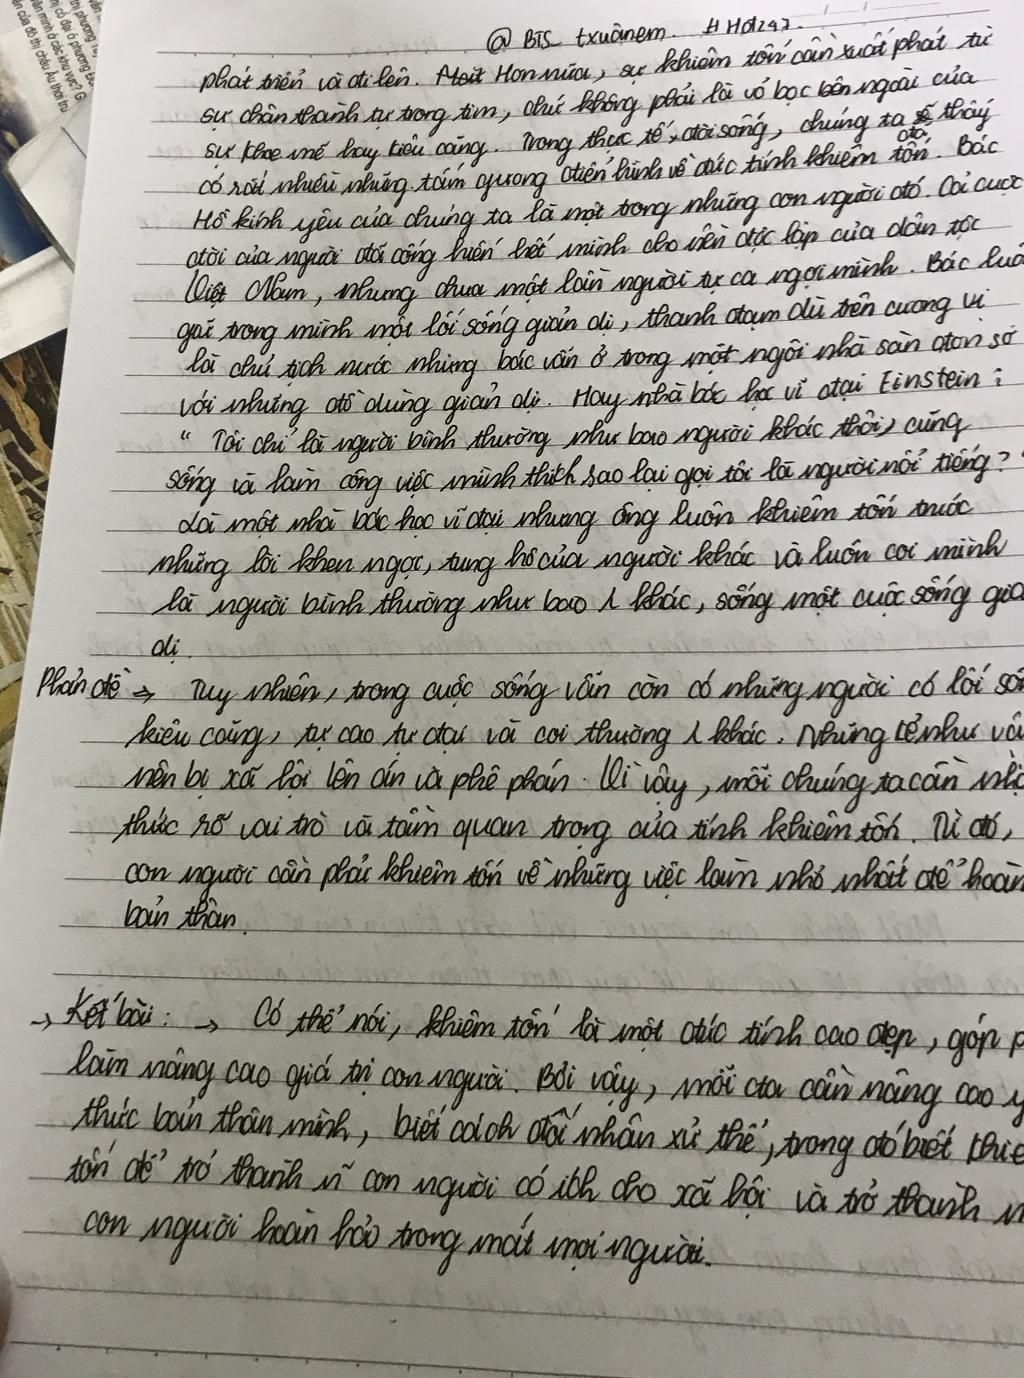 @ BTS txuânem. # Hot247.
phát triển và đi lên. Hơn nữa, sự khiêm tốn cần xuất phát từ
sự chân thành tự trong tim, chứ không phải là vỏ bọc bên ngoài của
sự khoe mẽ hay kiêu căng. Trong thực tế, đời sống, chúng ta đã thấy
có rất nhiều những tấm gương điển hình về đức tính khiêm tốn. Bác
Hồ kính yêu của chúng ta là một trong những con người đó. Cả cuộc
đời của người đã cống hiến hết mình cho nền độc lập của dân tộc
Việt Nam, nhưng chưa một lần người tự ca ngợi mình. Bác
giữ trong mình một lối sống giản dị, thanh đạm dù trên cương vị
là chủ tịch nước nhưng bác vẫn ở trong một ngôi nhà sàn đơn sơ
với những đồ dùng giản dị. Hay nhà bác học vĩ đại Einstein :
" Tôi chỉ là người bình thường như bao người khác thôi, cũng
sống và làm công việc mình thích sao lại gọi tôi là người nổi tiếng? "
Là một nhà bác học vĩ đại nhưng ông luôn khiêm tốn trước
những lời khen ngợi, tung hô của người khác và luôn coi mình
là người bình thường như bao λ khác, sống một cuộc sống
dị.
Phản đề → Tuy nhiên, trong cuộc sống vẫn còn có những người có lối
kiêu căng, tự cao tự đại và coi thường λ khác. Những kẻ như
nên bị xã hội lên án và phê phán. Vì vậy, mỗi chúng ta cần
thức rõ vai trò và tầm quan trọng của tính khiêm tốn. Từ đó,
con người cần phải khiêm tốn về những việc làm nhỏ nhất để hoàn
bản thân.
→ Kết bài : → Có thể nói, khiêm tốn là một đức tính cao đẹp, góp
làm nâng cao giá trị con người. Bởi vậy, mỗi cta cần nâng cao
thức bản thân mình, biết cách đối nhân xử thế, trong đó biết
tốn để trở thành con người có ích cho xã hội và trở thành
con người hoàn hảo trong mắt mọi người.